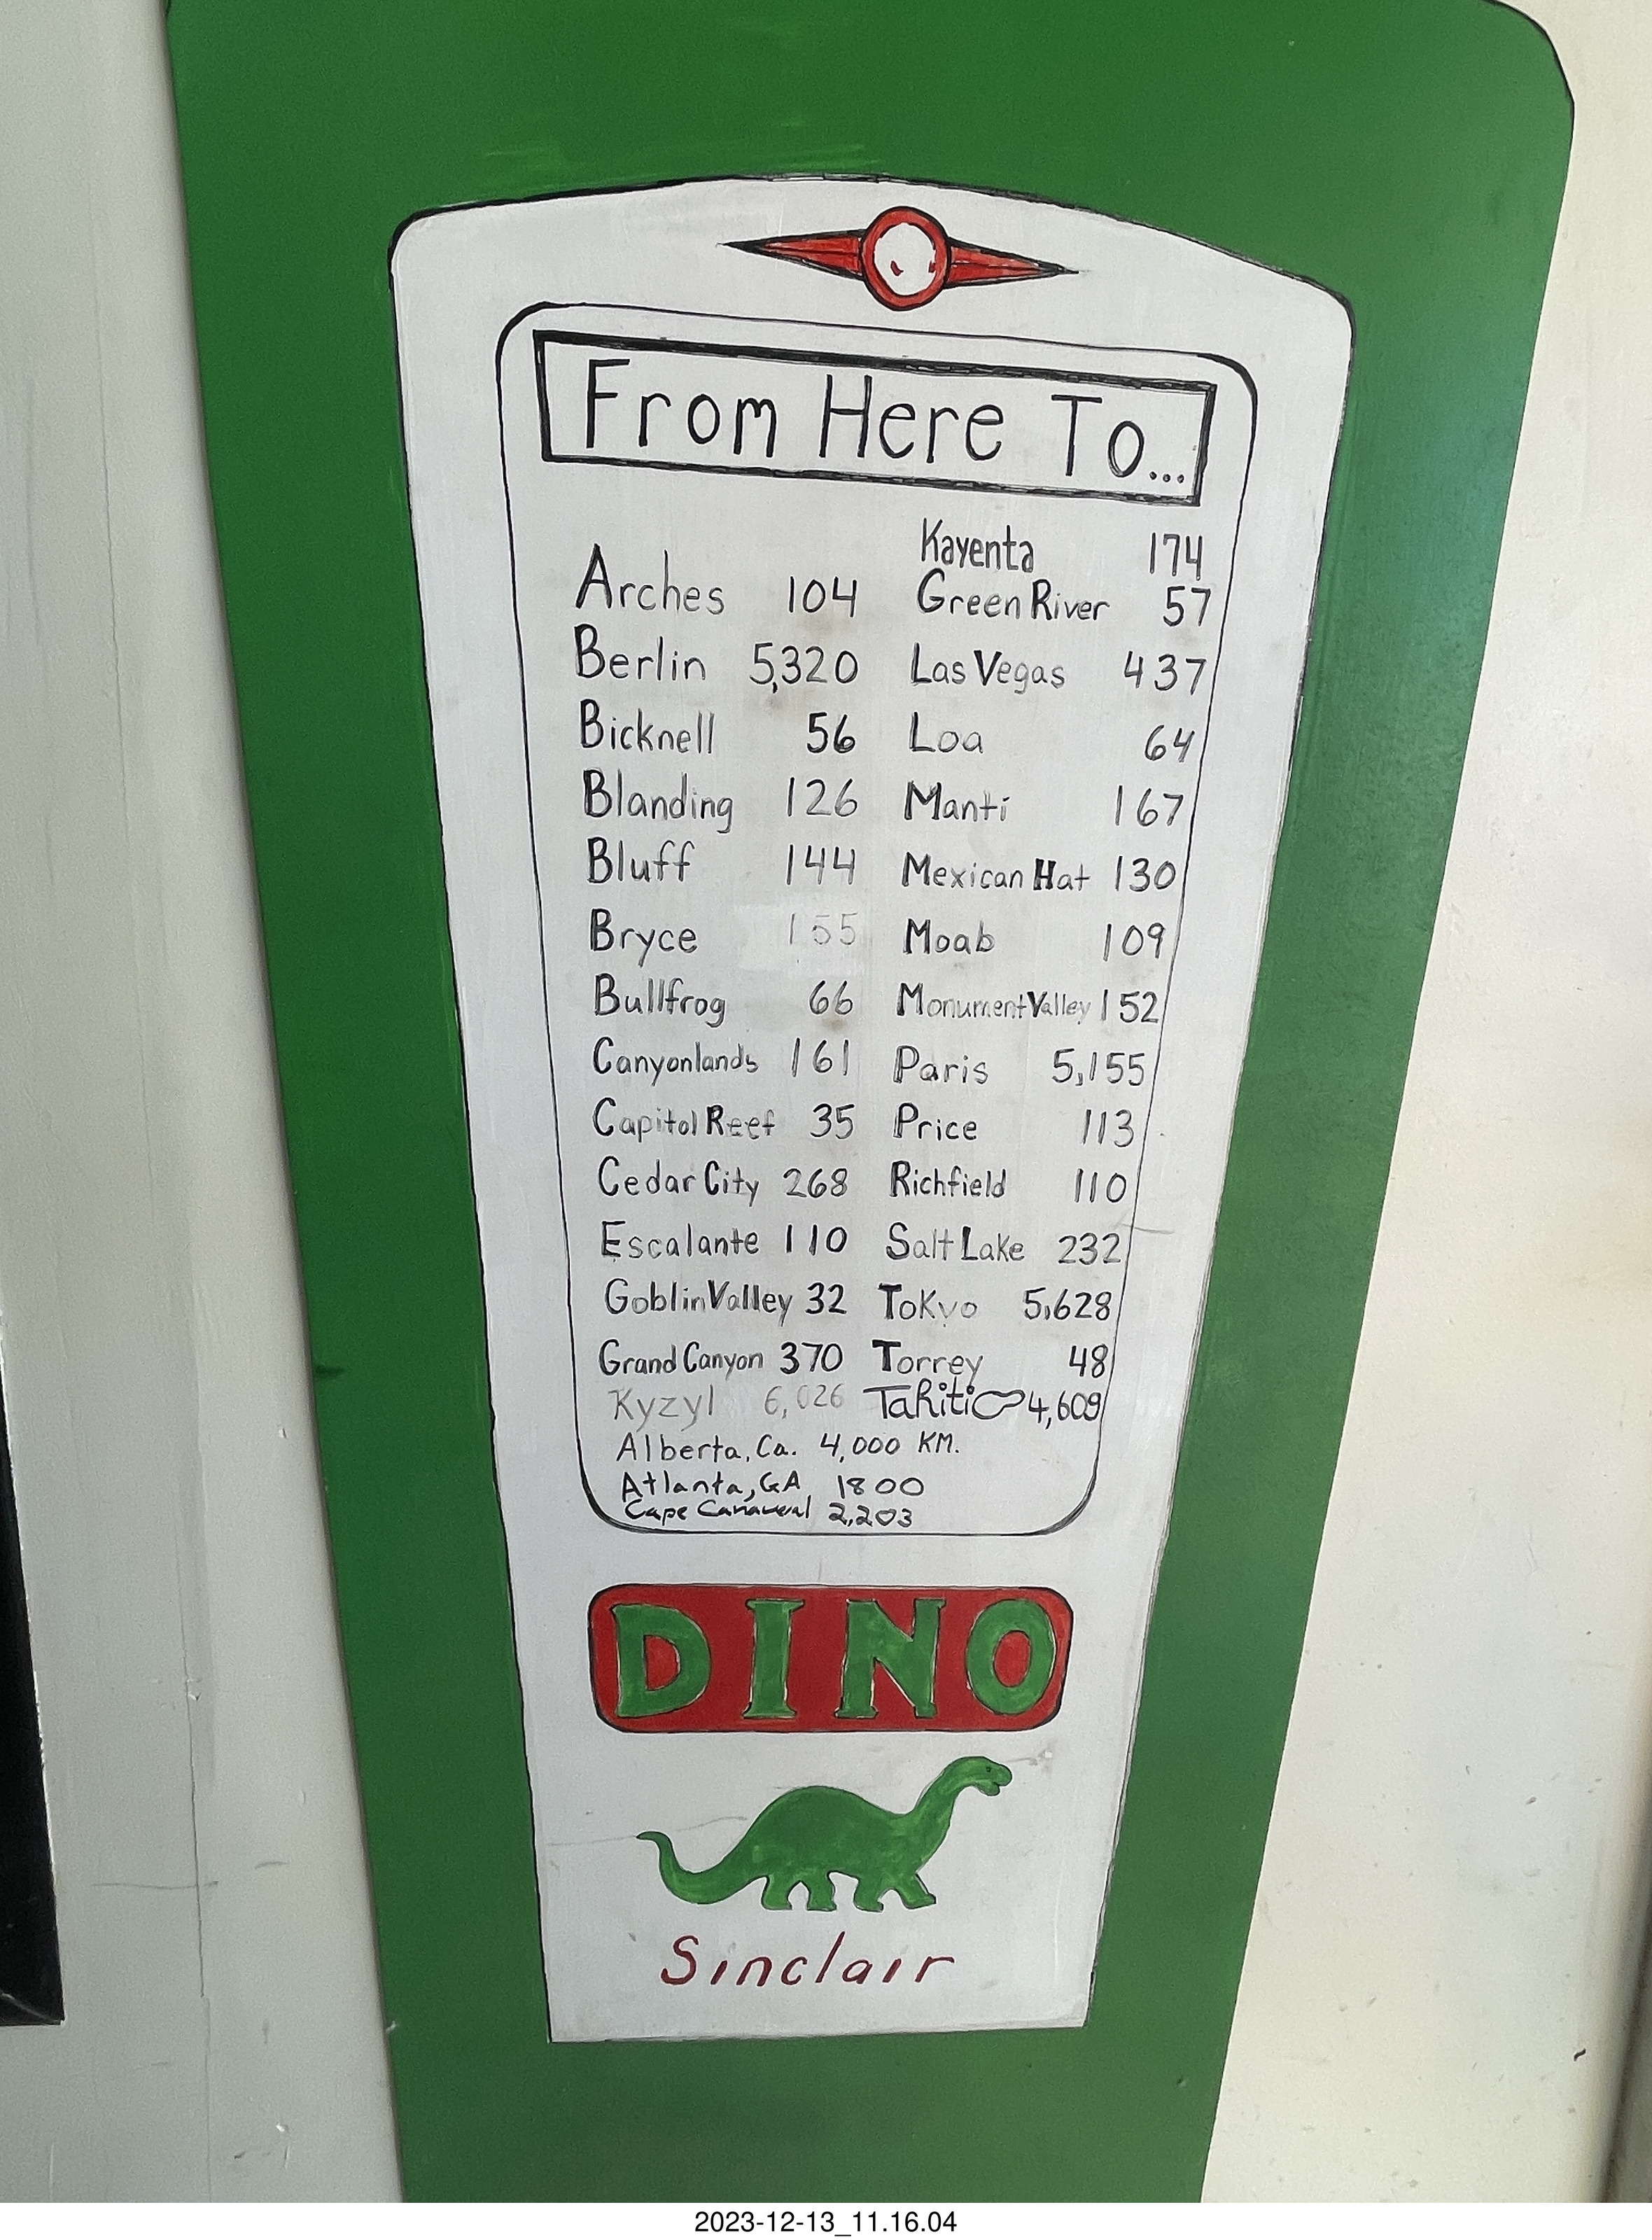 From Here To...
Kayenta 174
Arches 104 Green River 57
Berlin 5,320 Las Vegas 437
Bicknell 56 Loa 64
Blanding 126 Manti 167
Bluff 144 Mexican Hat 130
Bryce 155 Moab 109
Bullfrog 66 Monument Valley 152
Canyonlands 161 Paris 5,155
Capitol Reef 35 Price 113
Cedar City 268 Richfield 110
Escalante 110 Salt Lake 232
Goblin Valley 32 Tokyo 5,628
Grand Canyon 370 Torrey 48
Kyzyl 6,026 Tahiti 4,609
Alberta, Ca. 4,000 KM.
Atlanta, GA 1800
Cape Canaveral 2,203
DINO
Sinclair
2023-12-13_11.16.04